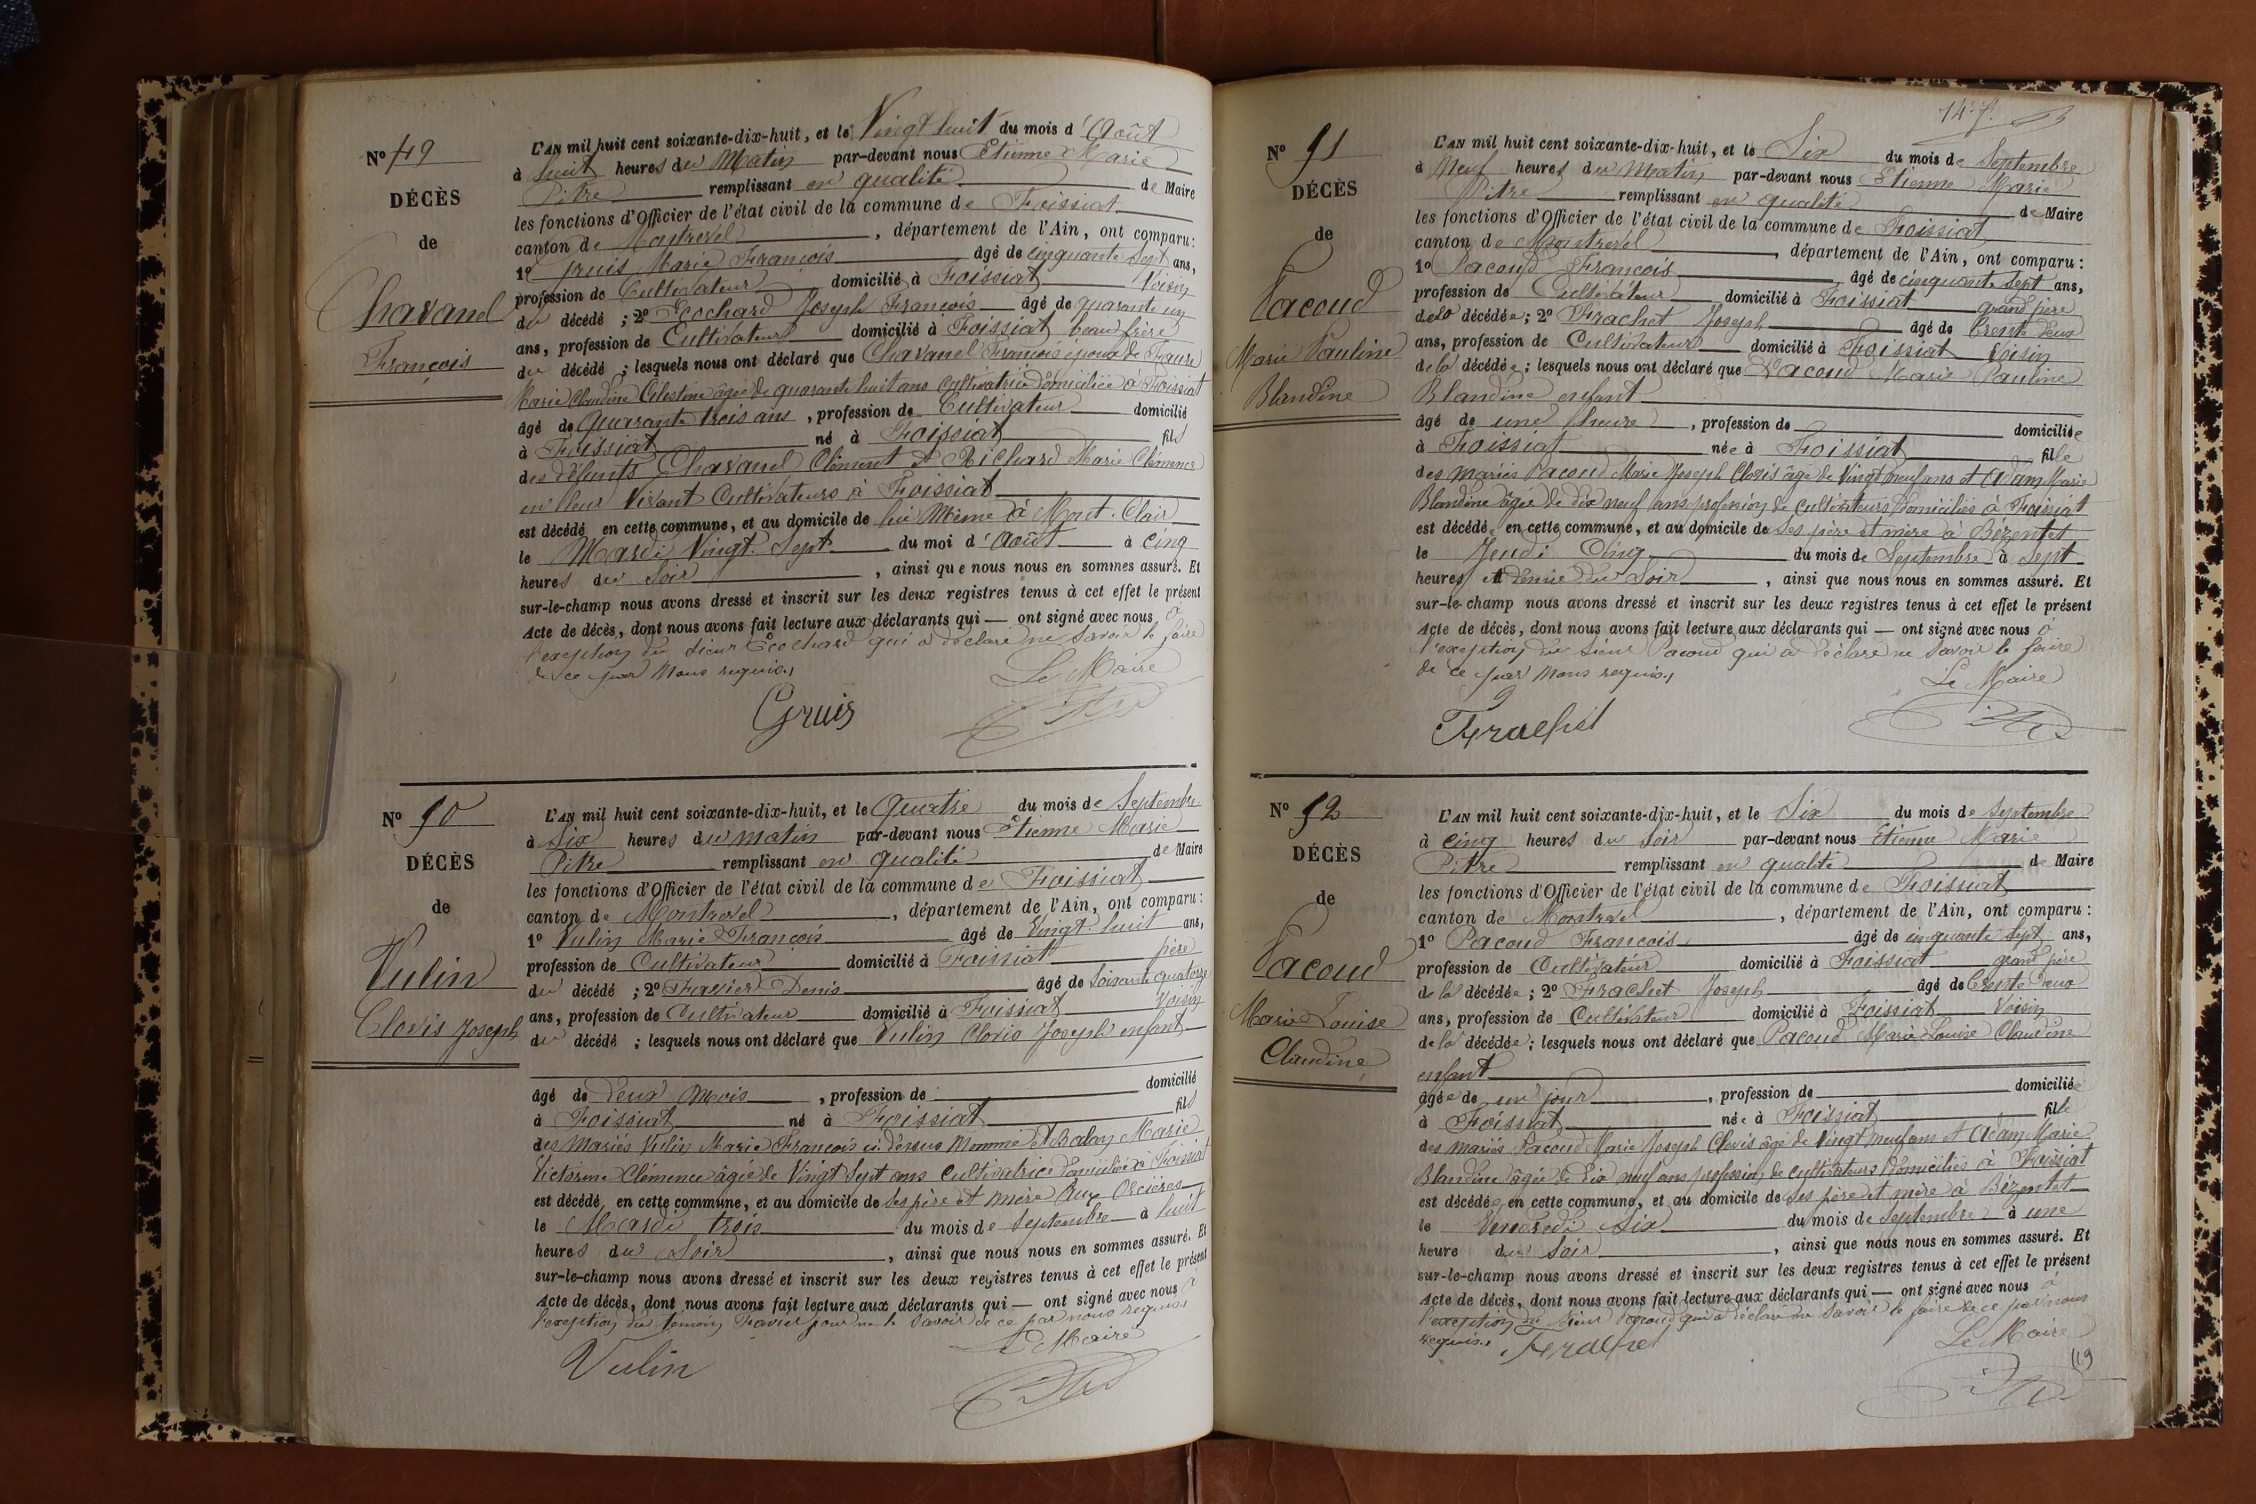 N° 49
DÉCÈS
de
Chavanel
François
L'AN mil huit cent soixante-dix-huit, et le Vingt huit du mois d'Août
à huit heures du Matin par-devant nous Etienne Marie
Pitre remplissant en qualité de Maire
les fonctions d'Officier de l'état civil de la commune de Foissiat
canton de Montrevel, département de l'Ain, ont comparu:
1° Gruis Marie François âgé de cinquante sept ans,
profession de Cultivateur domicilié à Foissiat Voisin
du décédé ; 2° Ecochard Joseph François âgé de quarante un
ans, profession de Cultivateur domicilié à Foissiat beau frère
du décédé ; lesquels nous ont déclaré que Chavanel François époux de Faure
Marie Claudine Célestine âgée de quarante huit ans Cultivatrice domiciliée à Foissiat
âgé de Quarante trois ans, profession de Cultivateur domicilié
à Foissiat né à Foissiat fils
des défunts Chavanel Clément et Richard Marie Clémence
en leur Vivant Cultivateurs à Foissiat
est décédé en cette commune, et au domicile de lui Même à Mont-Clair
le Mardi Vingt-Sept du moi d'Août à cinq
heures du Soir, ainsi que nous nous en sommes assuré. Et
sur-le-champ nous avons dressé et inscrit sur les deux registres tenus à cet effet le présent
Acte de décès, dont nous avons fait lecture aux déclarants qui — ont signé avec nous à
l'exception du sieur Ecochard qui a déclaré ne Savoir le faire
de ce par Nous requis.
Le Maire
Gruis
N° 50
DÉCÈS
de
Vulin
Clovis Joseph
L'AN mil huit cent soixante-dix-huit, et le Quatre du mois de Septembre
à Six heures du matin par-devant nous Etienne Marie
Pitre remplissant en qualité de Maire
les fonctions d'Officier de l'état civil de la commune de Foissiat
canton de Montrevel, département de l'Ain, ont comparu:
1° Vulin Marie François âgé de Vingt-huit ans,
profession de Cultivateur domicilié à Foissiat père
du décédé ; 2° Favier Denis âgé de Soixante quatorze
ans, profession de Cultivateur domicilié à Foissiat Voisin
du décédé ; lesquels nous ont déclaré que Vulin Clovis Joseph enfant
âgé de Deux Mois, profession de domicilié
à Foissiat né à Foissiat fils
des Mariés Vulin Marie François ci-dessus Nommé et Balay Marie
Victorine Clémence âgée de Vingt Sept ans Cultivatrice domiciliée à Foissiat
est décédé en cette commune, et au domicile de ses père et mère Aux Orcières
le Mardi trois du mois de Septembre à huit
heures du Soir, ainsi que nous nous en sommes assuré. Et
sur-le-champ nous avons dressé et inscrit sur les deux registres tenus à cet effet le présent
Acte de décès, dont nous avons fait lecture aux déclarants qui — ont signé avec nous à
l'exception du témoin Favier pour ne le Savoir de ce par nous requis.
Le Maire
Vulin
147.
N° 51
DÉCÈS
de
Pacoud
Marie Pauline
Blandine
L'AN mil huit cent soixante-dix-huit, et le Six du mois de Septembre
à Neuf heures du Matin par-devant nous Etienne Marie
Pitre remplissant en qualité de Maire
les fonctions d'Officier de l'état civil de la commune de Foissiat
canton de Montrevel, département de l'Ain, ont comparu:
1° Pacoud François âgé de cinquante sept ans,
profession de Cultivateur domicilié à Foissiat grand père
de la décédée ; 2° Frachet Joseph âgé de trente Deux
ans, profession de Cultivateur domicilié à Foissiat Voisin
de la décédée ; lesquels nous ont déclaré que Pacoud Marie Pauline
Blandine enfant
âgé de une heure, profession de domiciliée
à Foissiat née à Foissiat fille
des Mariés Pacoud Marie Joseph Clovis âgé de Vingt neuf ans et Adam Marie
Blandine âgée de dix neuf ans profession de cultivateurs Domiciliés à Foissiat
est décédée en cette commune, et au domicile de Ses père et mère à Bézentet
le Jeudi Cinq du mois de Septembre à Sept
heures et demie du Soir, ainsi que nous nous en sommes assuré. Et
sur-le-champ nous avons dressé et inscrit sur les deux registres tenus à cet effet le présent
Acte de décès, dont nous avons fait lecture aux déclarants qui — ont signé avec nous à
l'exception du sieur Pacoud qui a déclaré ne Savoir le faire
de ce par Nous requis.
Le Maire
Frachet
N° 52
DÉCÈS
de
Pacoud
Marie Louise
Claudine
L'AN mil huit cent soixante-dix-huit, et le Six du mois de Septembre
à cinq heures du Soir par-devant nous Etienne Marie
Pitre remplissant en qualité de Maire
les fonctions d'Officier de l'état civil de la commune de Foissiat
canton de Montrevel, département de l'Ain, ont comparu:
1° Pacoud François âgé de cinquante sept ans,
profession de Cultivateur domicilié à Foissiat grand père
de la décédée ; 2° Frachet Joseph âgé de trente Deux
ans, profession de Cultivateur domicilié à Foissiat Voisin
de la décédée ; lesquels nous ont déclaré que Pacoud Marie Louise Claudine
enfant
âgée de un jour, profession de domiciliée
à Foissiat née à Foissiat fille
des mariés Pacoud Marie Joseph Clovis âgé de Vingt neuf ans et Adam Marie
Blandine âgée de Dix neuf ans profession de cultivateurs Domiciliés à Foissiat
est décédée en cette commune, et au domicile de Ses père et mère à Bézentet
le Vendredi Six du mois de Septembre à une
heure du Soir, ainsi que nous nous en sommes assuré. Et
sur-le-champ nous avons dressé et inscrit sur les deux registres tenus à cet effet le présent
Acte de décès, dont nous avons fait lecture aux déclarants qui — ont signé avec nous à
l'exception du Sieur Pacoud qui a déclaré ne Savoir le faire de ce par nous
requis.
Le Maire
Frachet